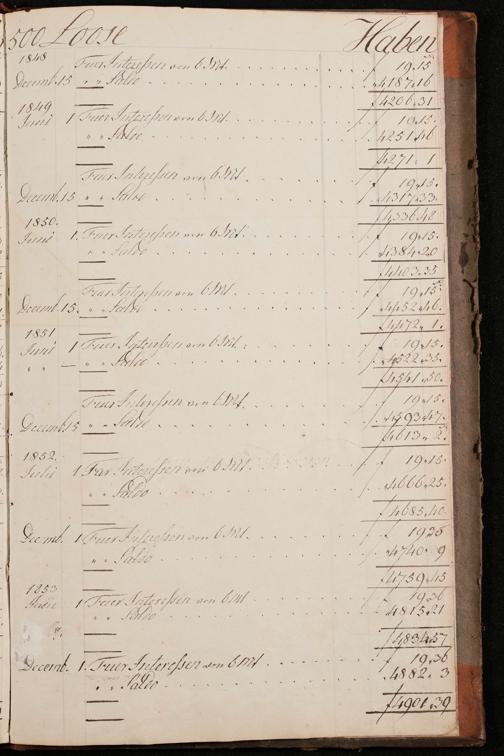 500 Loose Haben
1848 Fuer Interessen von 6 Mt. 19.15
Decemb. 15 " " Saldo 4187.16
f 4206.31
1849
Juni 1 Fuer Interessen von 6 Mt. f 19.15.
" " Saldo 4251.46
f 4271. 1
Fuer Interessen von 6 Mt. f 19.15.
Decemb. 15 " " Saldo 4317.33
f 4336.48
1850.
Juni 1. Fuer Interessen von 6 Mt. f 19.15.
" " Saldo 4384.20
f 4403.35
Fuer Interessen von 6 Mt. f 19.15
Decemb. 15. " " Saldo 4452.46.
f 4472. 1.
1851
Juni 1 Fuer Interessen von 6 Mt. f 19.15.
" " — " " Saldo 4522.35.
f 4541.50.
Fuer Interessen von 6 Mt. f 19.15.
Decemb. 15 " " Saldo 4593.47.
f 4613. 2.
1852
Juli 1 Fuer Interessen von 6 Mt. f 19.15.
" " Saldo 4666.25.
f 4685.40
Decemb. 1 Fuer Interessen von 6 Mt. f 19.36
" " Saldo 4740. 9
f 4759.45
1853
Juni 1 Fuer Interessen von 6 Mt f 19.36
" " Saldo 4815.21
f 4834.57
Decemb. 1. Fuer Interessen von 6 Mt f 19.36
" " Saldo 4882. 3
f 4901.39